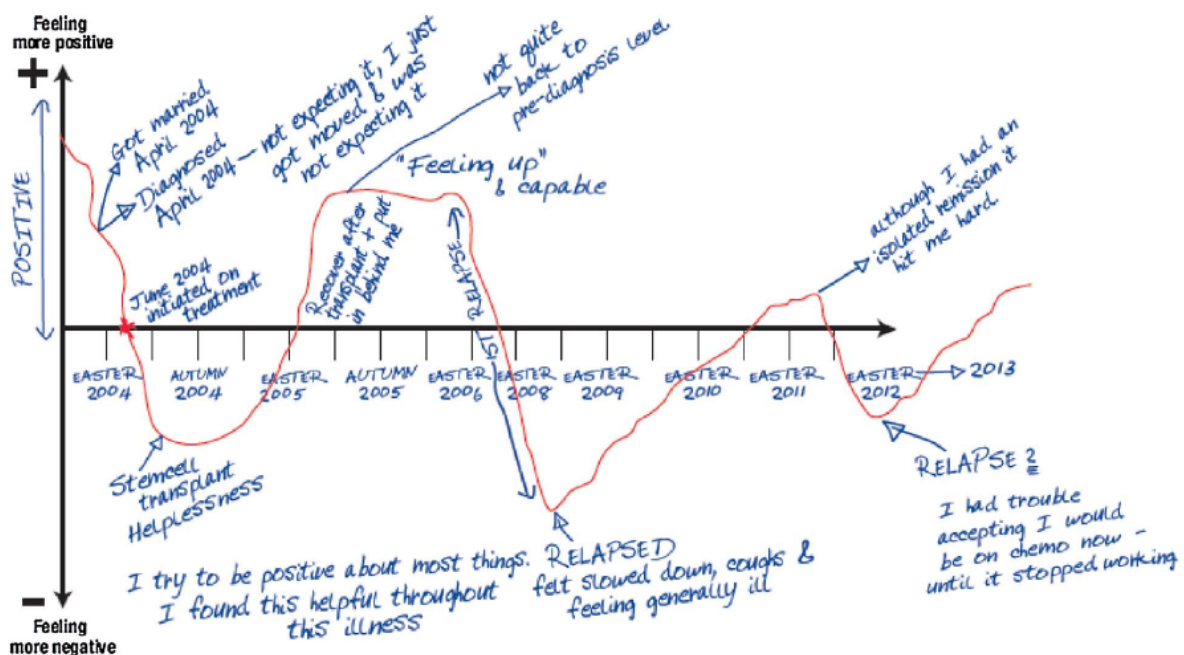 Feeling
more positive
+
POSITIVE
Got married
April 2004
Diagnosed
April 2004 — not expecting it, I just
got moved & was
not expecting it
June 2004
initiated on
treatment
not quite
back to
pre-diagnosis level
"Feeling up"
& capable
Recover after
transplant + put
in behind me
1ST RELAPSE
although I had an
isolated remission it
hit me hard.
EASTER
2004
AUTUMN
2004
EASTER
2005
AUTUMN
2005
EASTER
2006
EASTER
2008
EASTER
2009
EASTER
2010
EASTER
2011
EASTER
2012
2013
Stemcell
transplant
Helplessness
I try to be positive about most things.
I found this helpful throughout
this illness
RELAPSED
felt slowed down, coughs &
feeling generally ill
RELAPSE 2
I had trouble
accepting I would
be on chemo now -
until it stopped working
-
Feeling
more negative